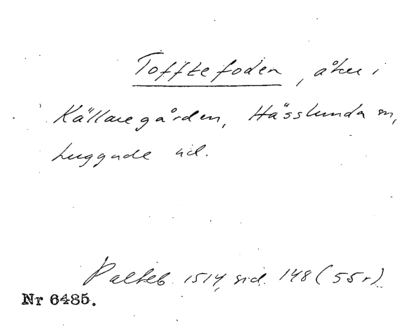 Toffte foden, åker i
Källaregården, Hässlunda sn,
Luggude hd.
Palteb. 1514, sid. 148 (55r)
Nr 6485.